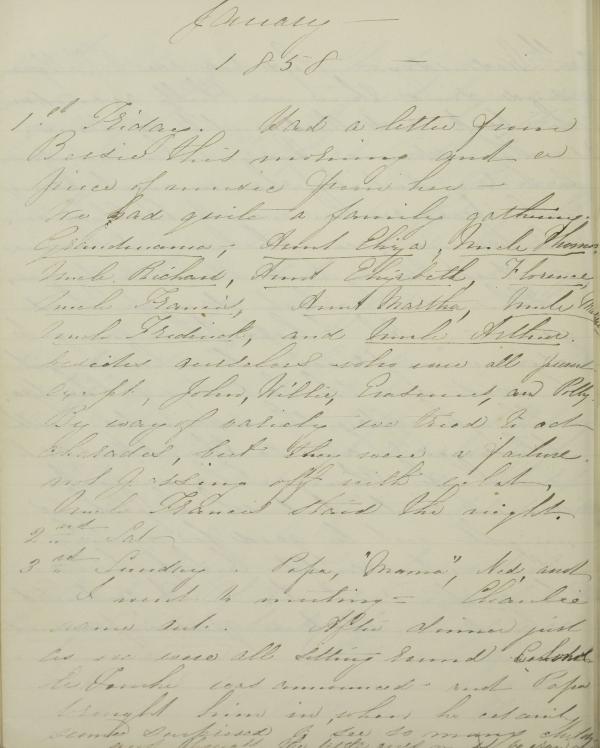 January —
1858 —
1st Friday. Had a letter from
Bessie this morning and a
piece of music from her —
We had quite a family gathering.
Grandmama, Aunt Eliza, Uncle Thomas
Uncle Richard, Aunt Elizabeth, Florence,
Uncle Francis, Aunt Martha, Uncle
Uncle Fredrick, and Uncle Arthur.
besides ourselves who were all present
except, John, Willie, Erasmus, and Polly.
By way of variety we tried to act
charades, but they were a failure.
not passing off with eclat.
Uncle Francis staid the night.
2nd Sat
3rd Sunday. Papa, "Mama", Ned, and
I went to meeting — Charlie
came out. After dinner just
as we were all sitting round
was announced and Papa
brought him in, when he certainly
seemed surprised to see so many